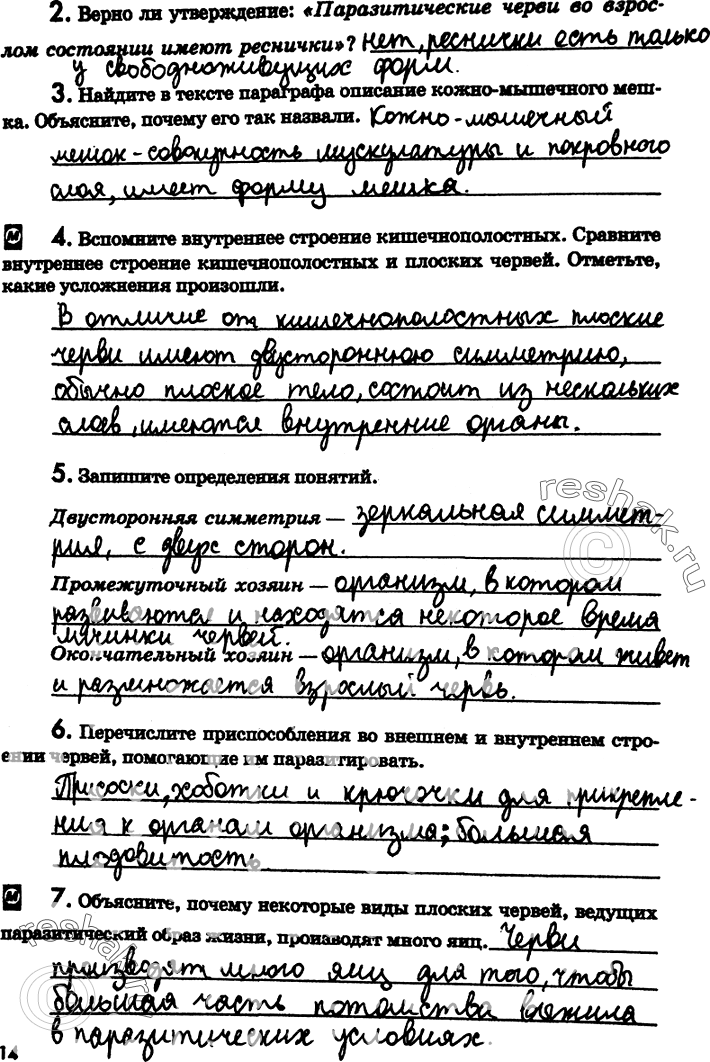 2. Верно ли утверждение: «Паразитические черви во взрос-
лом состоянии имеют реснички»? нет, реснички есть только
у свободноживущих форм.
3. Найдите в тексте параграфа описание кожно-мышечного меш-
ка. Объясните, почему его так назвали. Кожно-мышечный
мешок - совокупность мускулатуры и покровного
слоя, имеет форму мешка.
М 4. Вспомните внутреннее строение кишечнополостных. Сравните
внутреннее строение кишечнополостных и плоских червей. Отметьте,
какие усложнения произошли.
В отличие от кишечнополостных плоские
черви имеют двустороннюю симметрию,
обычно плоское тело, состоит из нескольких
слоев, имеются внутренние органы.
5. Запишите определения понятий.
Двусторонняя симметрия — зеркальная симмет-
рия, с двух сторон.
Промежуточный хозяин — организм, в котором
развиваются и находятся некоторое время
личинки червей.
Окончательный хозяин — организм, в котором живет
и размножается взрослый червь.
6. Перечислите приспособления во внешнем и внутреннем стро-
ении червей, помогающие им паразитировать.
Присоски, хоботки и крючочки для прикрепле-
ния к органам организма; большая
плодовитость
М 7. Объясните, почему некоторые виды плоских червей, ведущих
паразитический образ жизни, производят много яиц. Черви
производят много яиц для того, чтобы
большая часть потомства выжила
в паразитических условиях.
14
reshak.ru
©